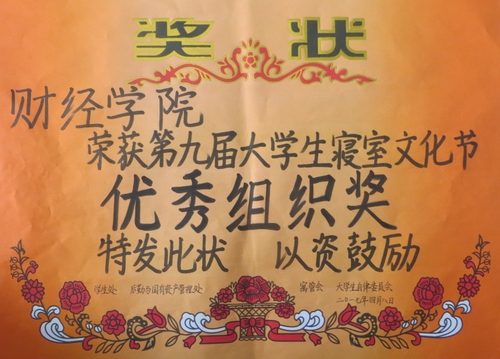 奖状
财经学院
荣获第九届大学生寝室文化节
优秀组织奖
特发此状 以资鼓励
学生处 后勤与国有资产管理处 寓管会 大学生自律委员会
二〇一七年四月八日